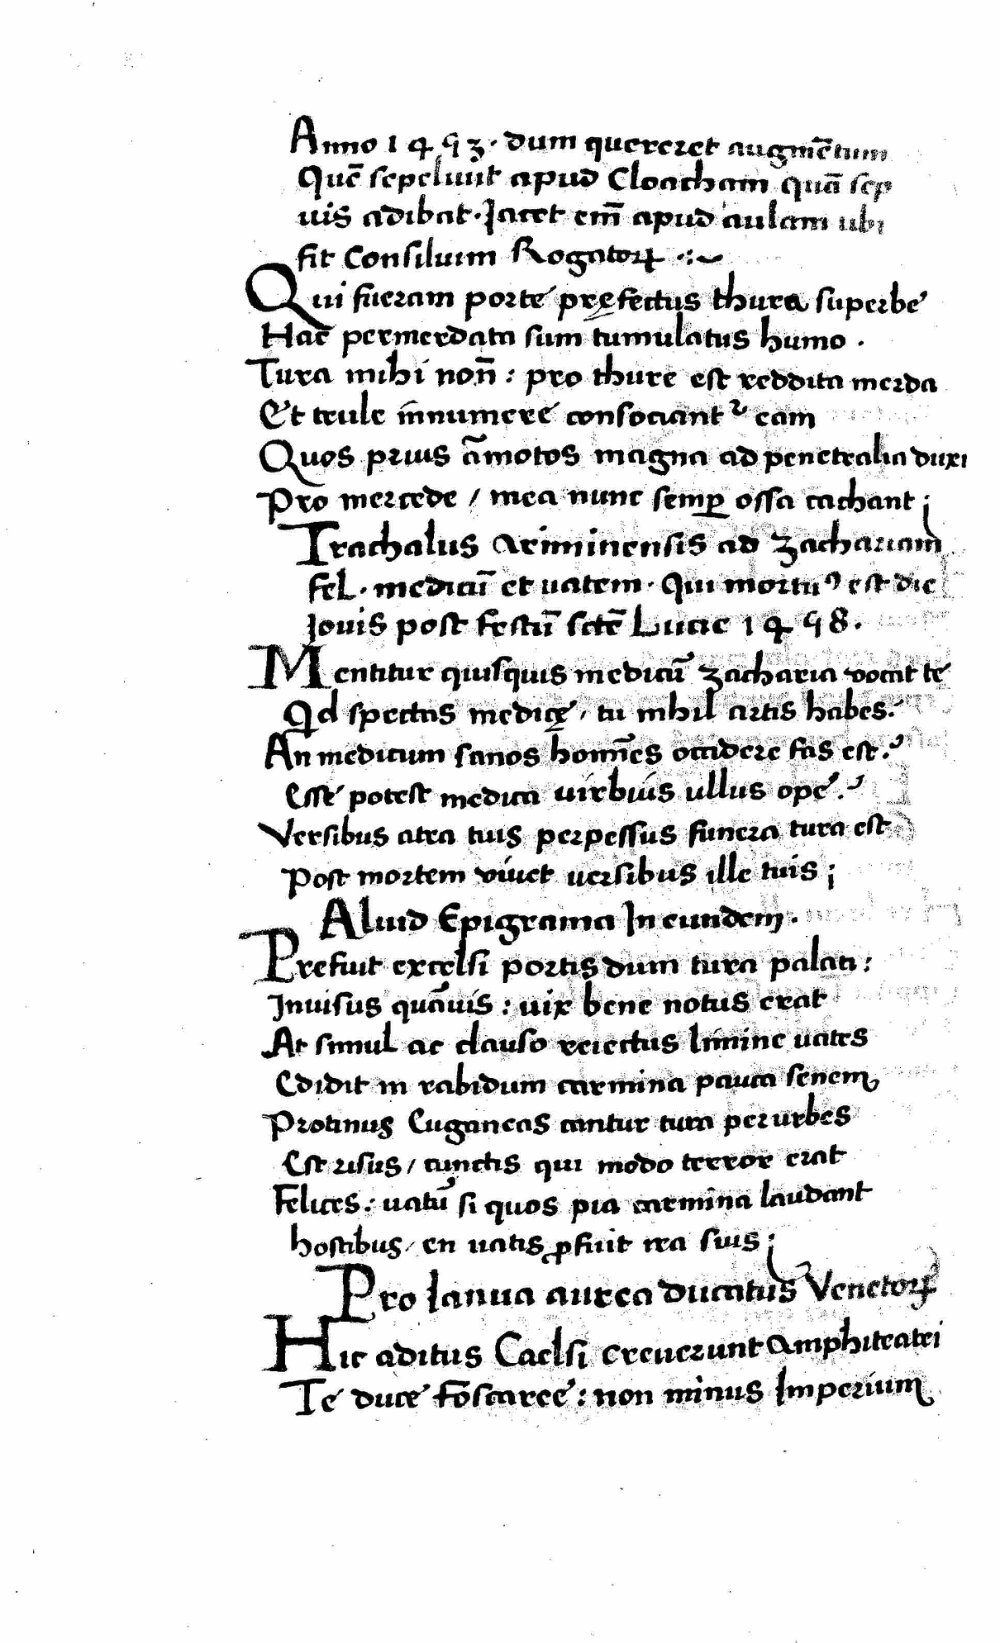 Anno 1453. dum quereret augmẽtum
Quẽ sepeliunt apud Cloacham quã sep
uis adibat. Jacet em̃ apud aulam ubi
fit Consilium Rogatoꝝ
Qui fueram porte pręfectus thura superbe
Hac permerdata sum tumulatus humo.
Tura mihi non̄: pro thure est reddita merda
Et trule innumere consociant᷑ eam
Quos prius ãmotos magna ad penetralia duxi
Pro mercede / mea nunc semꝑ ossa cachant;
Trachalus Ariminensis ad Zachariam
fel. medicũ et uatem. Qui mortuꝰ est die
Jouis post festũ sctẽ Lucie 1458.
Mentitur quisquis medicũ Zacharia vocat te
Qd spectas medicę, tu nihil artis habes.
An medicum sanos homĩes occidere fas est?
Esse potest medica uirbius ullus ope?
Versibus atra tuis perpessus funera tura est
Post mortem viuet uersibus ille tuis;
Aliud Epigrama In eundem.
Prefuit excelsi portis dum tura palati:
Inuisus quãuis: uix bene notus erat
At simul ac clauso reiectus limine uates
Edidit in rabidum carmina pauca senem
Protinus Euganeas cantur tura per urbes
Est risus / cunctis qui modo terror erat
Felices: uatũ si quos pia carmina laudant
hostibus / en uatis ꝓfuit ira suis;
Pro Ianua aurea ducatus Venetoꝝ
Hic aditus Caelsi creuerunt Amphiteatri
Te duce Fõscaree: non minus Imperium